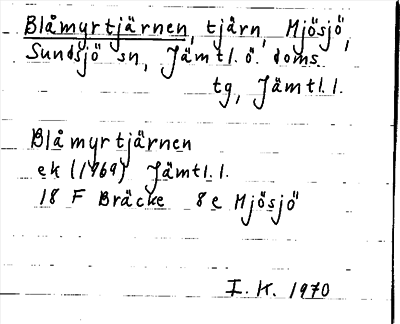 Blåmyrtjärnen, tjärn, Mjösjö,
Sundsjö sn, Jämtl. ö. doms.
tg, Jämtl. l.
Blåmyrtjärnen
ek (1969) Jämtl. l.
18 F Bräcke 8e Mjösjö
I. K. 1970